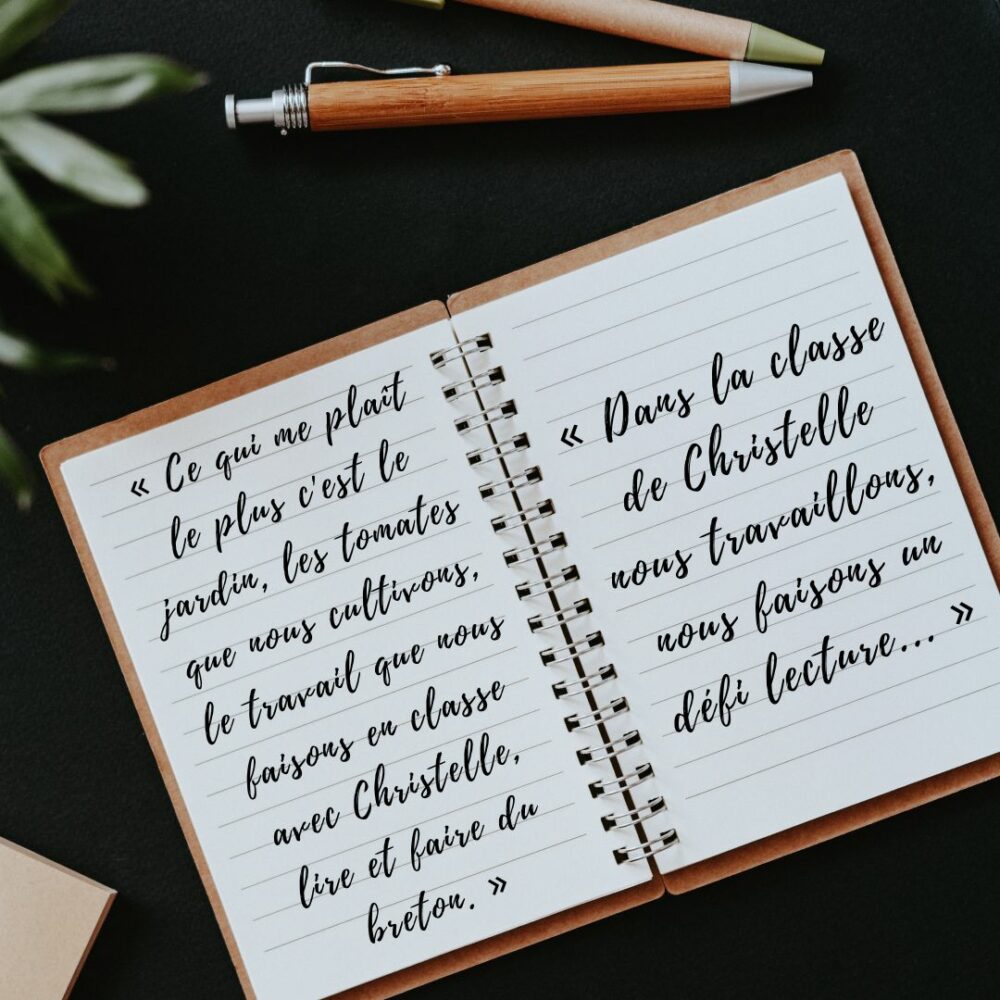 « Ce qui me plaît
le plus c'est le
jardin, les tomates
que nous cultivons,
le travail que nous
faisons en classe
avec Christelle,
lire et faire du
breton. »
« Dans la classe
de Christelle
nous travaillons,
nous faisons un
défi lecture... »